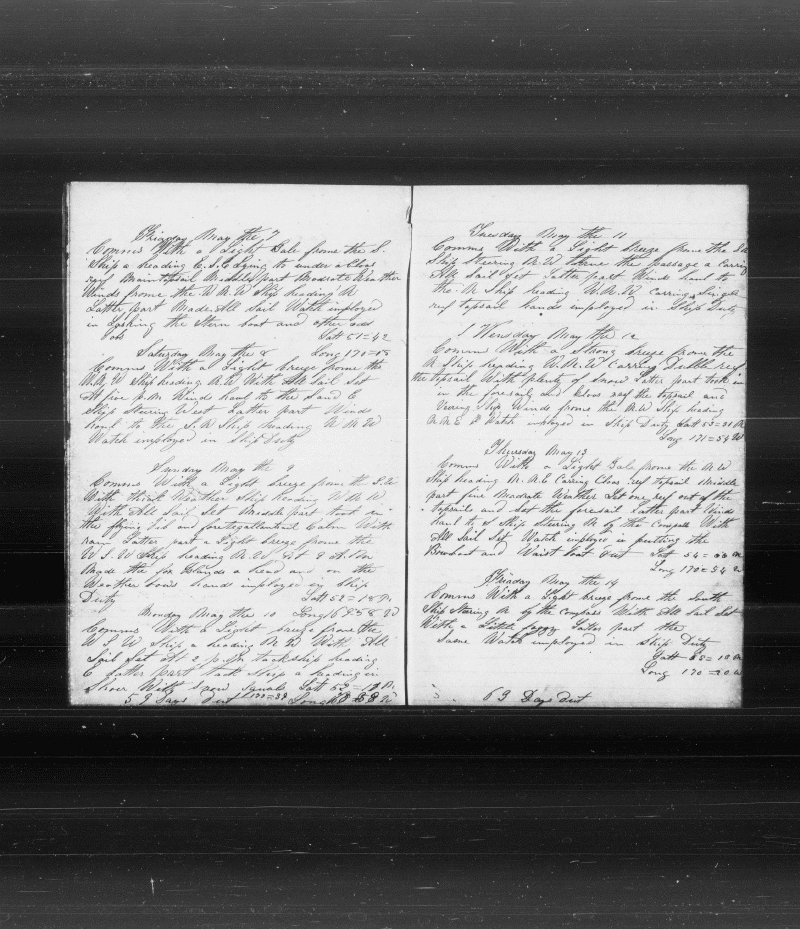 Friday May the 7
Comms With a Light Gale frome the S.
Ship a heading E.S.E lying to under a Clos
reef Maintopsail Middle part Moderate Weather
Winds frome the W.N.W Ship heading N
Latter part Made All Sail Watch employed
in Lashing the Stern boat and other odd
Jobs Latt 51=42
Saturday May the 8 Long 170=15
Comms With a Light breeze frome the
Ship heading N.W With All Sail Set
At five p.m. Winds haul to the S and E
Ship Stering West Latter part Winds
haul to the S.W Ship heading N N W
Watch employed in Ship Duty
Sunday May the 9
Comms With a Light breeze frome the
With thick Weather Ship heading W.N.W
With All Sail Set Middle part took in
the flying Jib and foretogallantsail Calm With
rain Latter part a Light breeze frome the
W S.W Ship heading N.W At 9 A.M
Made the fox Islands a head and on the
Weather bow hands employed in Ship
Duty Latt 52=18 N
Monday May the 10 Long 169=58 W
Comms With a Light breeze frome the
W S W Ship a heading N W With All
Sail Set At 2 p.m tack ship heading
Latter part tack Ship a heading in
Shore With Snow Squals Latt 52=19 N.
59 Days Out 170=39 Long
Tuesday May the 11
Comms With a Light breeze frome the
Ship Steering N.W threw the passage a Carring
All Sail Set Latter part Winds haul to
the N Ship heading W.N.W Carring Single
reef topsail hands employed in Ship Duty
Wensday May the 12
Comms With a Strong breeze frome the
N Ship heading W.N.W Carring Dubble reef
the topsail With plenty of Snow Latter part took in
in the foresail and Clos reef the topsail and
Winds frome the N.W Ship heading
Watch employed in Ship Duty Latt 53=31 N
Long 171=54 W
Thursday May 13
Comms With a Light Gale frome the N W
Ship heading N.N.E Carring Clos reef topsail Middle
part fine Moderate Weather Let one reef out of the
topsails and Set the foresail Latter part Winds
haul to S Ship Steering N by the Compass With
All Sail Set Watch employed in putting the
Bowboat and Waist boat Out Latt 54=
Long 170=54 W
Friday May the 14
Comms With a Light breeze frome the South
Ship Stering N by the Compass With All Sail Set
With a Little foggy Latter part the
Same Watch employed in Ship Duty
Latt 55=10 N
Long 170=20 W
63 Days Out